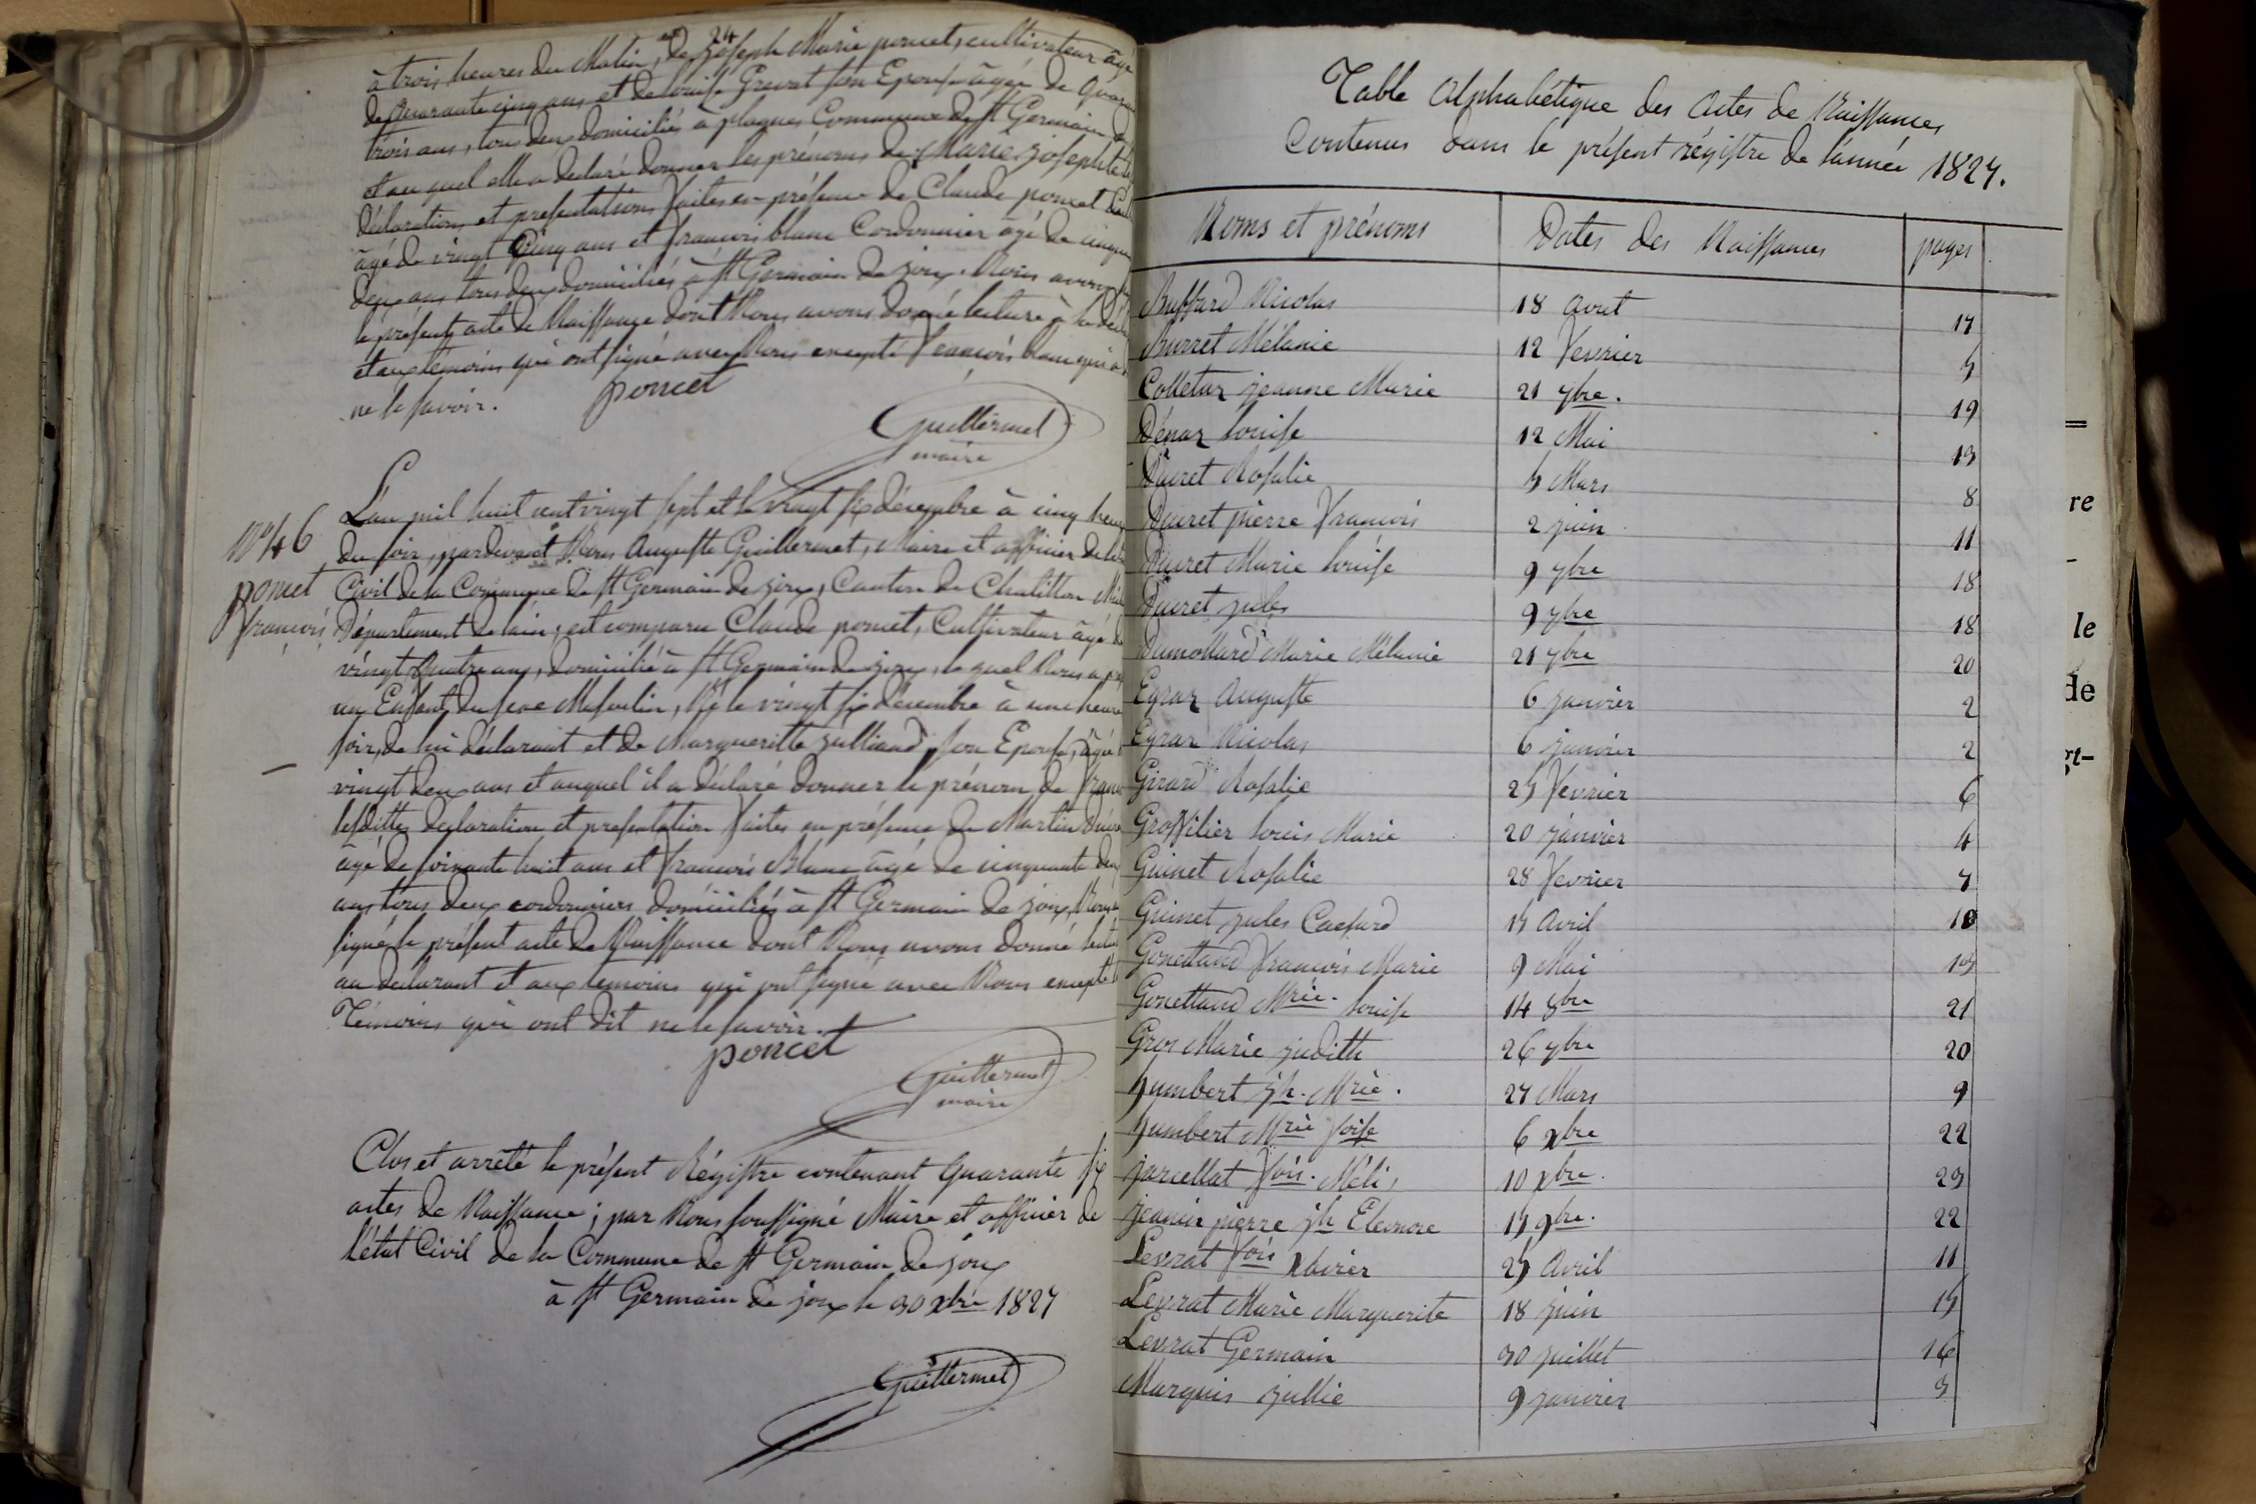 à trois heures du Matin, de Joseph Marie poncet, cultivateur âgé
de quarante cinq ans et de Louise Grevat son Epouse âgée de quara
trois ans, tous deux domiciliés à plagnes Commune de St Germain de
et au quel elle a déclaré donner les prénoms de Marie Josephte
déclaration et présentation faites en présence de Claude poncet
âgé de vingt Cinq ans et françois blanc Cordonnier âgé de cinquan
deux ans tous deux domiciliés à St Germain de joux. Nous avons
le présent acte de Naissance dont Nous avons donné lecture à la
et aux témoins qui ont signé avec Nous excepté françois blanc qui a
ne le savoir.
poncet
Guillermet
maire
N° 46
poncet
françois
L'an mil huit cent vingt sept et le vingt six décembre à cinq heures
du soir, pardevant Nous Auguste Guillermet, Maire et officier de
Civil de la Commune de St Germain de joux, Canton de Chatillon
Département de lain, est comparu Claude poncet, Cultivateur âgé de
vingt quatre ans, domicilié à St Germain de joux, le quel Nous a
un Enfant du sexe Masculin, Né le vingt six décembre à une heure
soir, de lui déclarant et de Marguerite julliand son Epouse, âgée
vingt deux ans et auquel il a déclaré donner le prénom de franc
lesdittes déclaration et présentation faites en présence de Martin
âgé de soixante huit ans et françois Blanc âgé de cinquante deux
ans tous deux cordonniers domiciliés à St Germain de joux, Nous
signé le présent acte de Naissance dont Nous avons donné lectu
au déclarant et aux témoins qui ont signé avec Nous excepté
Témoins qui ont dit ne le savoir.
poncet
Guillermet
maire
Clos et arrêté le présent Régistre contenant quarante six
actes de Naissance; par Nous soussigné Maire et officier de
l'état Civil de la Commune de St Germain de joux
à St Germain de joux le 30 xbre 1827
Guillermet
Table Alphabétique des Actes de Naissances
Contenus dans le présent régistre de l'année 1827.
Noms et prénoms Dates des Naissances pages
Buffard Nicolas 18 Aout 17
Burret Mélanie 12 fevrier 5
Colletaz jeanne Marie 21 7bre. 19
Dénaz Louise 12 Mai 13
Ducret Rosalie 5 Mars 8
Ducret pierre françois 2 juin 11
Ducret Marie Louise 9 7bre 18
Ducret jules 9 7bre 18
Dumollard Marie Mélanie 21 7bre 20
Egraz Auguste 6 janvier 2
Egraz Nicolas 6 janvier 2
Girard Rosalie 25 fevrier 6
Grosfilier Louis Marie 20 janvier 4
Guinet Rosalie 28 fevrier 7
Guinet jules 15 Avril 10
Gonettand françois Marie 9 Mai
Gonettand Mrie. Louise 14 8bre 21
Gros Marie juditte 26 7bre 20
humbert jh. Mrie. 27 Mars 9
humbert Mrie foise 6 xbre 22
jarcellat fois. 10 xbre. 23
jeanin pierre jh Eleonore 15 9bre. 22
Levrat fois Xbavier 25 Avril 11
Levrat Marie Marguerite 18 juin 15
Levrat Germain 30 juillet 16
Marquis jullie 9 janvier 3
re
le
de
gt-